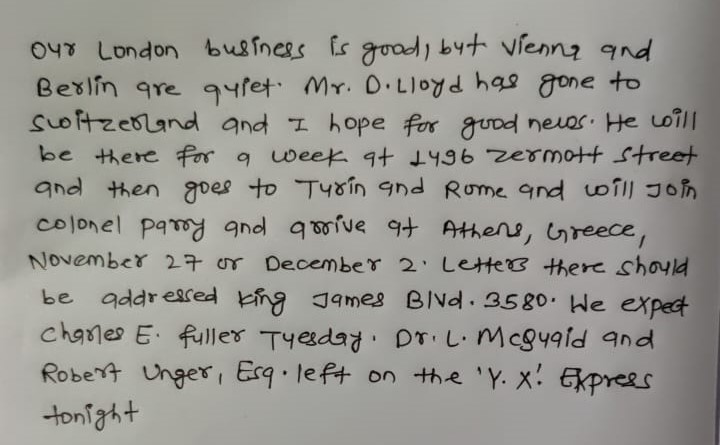 Our London business is good, but Vienna and
Berlin are quiet. Mr. D. Lloyd has gone to
Switzerland and I hope for good news. He will
be there for a week at 1496 Zermott Street
and then goes to Turin and Rome and will Join
colonel parry and arrive at Athens, Greece,
November 27 or December 2. Letters there should
be addressed King James Blvd. 3580. We expect
Charles E. fuller Tuesday. Dr. L. McQuaid and
Robert Unger, Esq. left on the 'Y. X.' Express
tonight